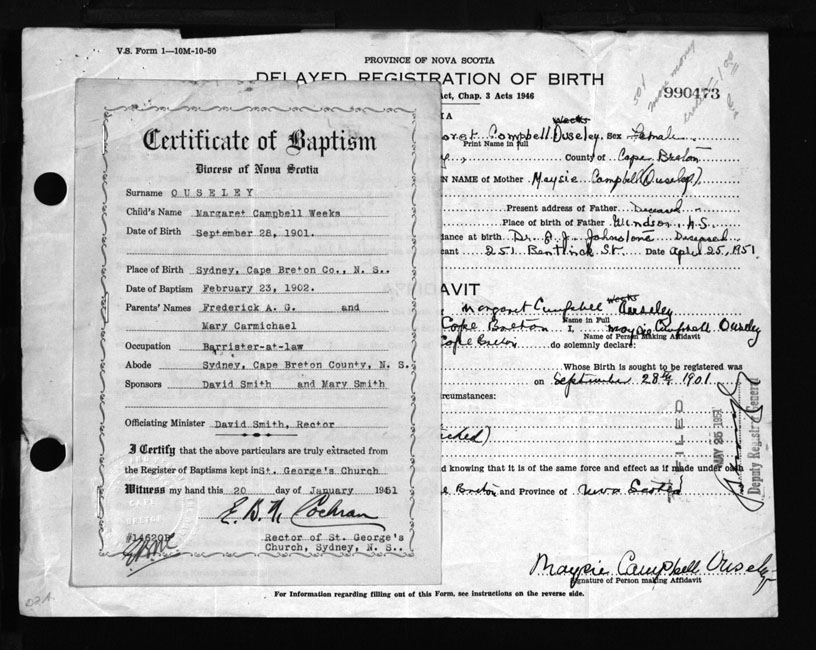 V.S. Form 1—10M-10-50
PROVINCE OF NOVA SCOTIA
DELAYED REGISTRATION OF BIRTH
Act, Chap. 3 Acts 1946
990473
Certificate of Baptism
Diocese of Nova Scotia
Surname OUSELEY
Child's Name Margaret Campbell Weeks
Date of Birth September 28, 1901.
Place of Birth Sydney, Cape Breton Co., N. S..
Date of Baptism February 23, 1902.
Parents' Names Frederick A. G. and
Mary Carmichael
Occupation Barrister-at-law
Abode Sydney, Cape Breton County, N. S.
Sponsors David Smith and Mary Smith
Officiating Minister David Smith, Rector
I Certify that the above particulars are truly extracted from
the Register of Baptisms kept in St. George's Church
Witness my hand this 20 day of January 1951
E. B. N. Cochran
#14620B
Rector of St. George's
Church, Sydney, N. S..
Weeks
Campbell Ouseley, Sex Female
Print Name in full
County of Cape Breton
N NAME of Mother Maysie Campbell (Ouseley)
Present address of Father Deceased
Place of birth of Father Windsor, N.S.
tance at birth Dr. J. J. Johnstone Deceased
cant 251 Bentinck St. Date April 25, 1951
AVIT
Weeks
Margaret Campbell Ouseley
Name in Full
Cape Breton I, Maysie Campbell Ouseley
Name of Person Making Affidavit
Cape Breton do solemnly declare:
Whose Birth is sought to be registered was
on September 28th 1901
circumstances:
and knowing that it is of the same force and effect as if made under
Breton and Province of Nova Scotia
FILED
MAY 25 1951
Deputy Registrar General
Maysie Campbell Ouseley
Signature of Person making Affidavit
For Information regarding filling out of this Form, see instructions on the reverse side.